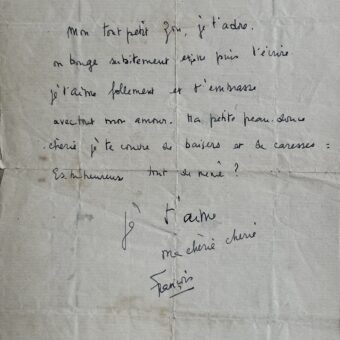 mon tout petit Zou, je t'adore.
on bouge subitement enfin puis t'écrire
je t'aime follement et t'embrasse
avec tout mon amour. Ma petite peau douce
chérie je te couvre de baisers et de caresses :
Es tu heureux tout de même ?
je t'aime
ma chérie chérie
François